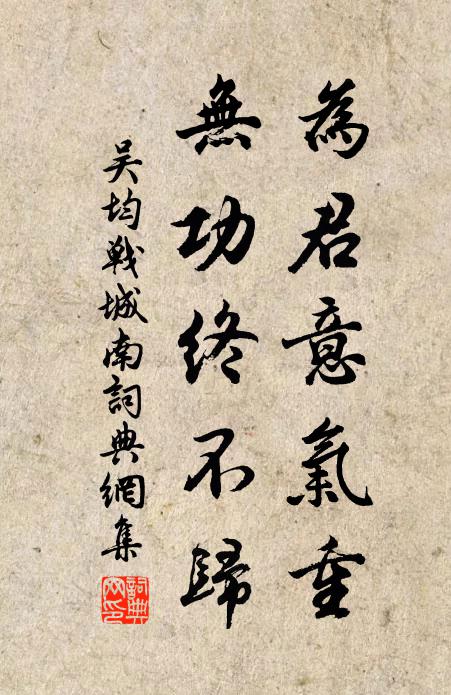 為君意氣重
無功終不歸
吴均戰城南詞典網集
詞典
網印